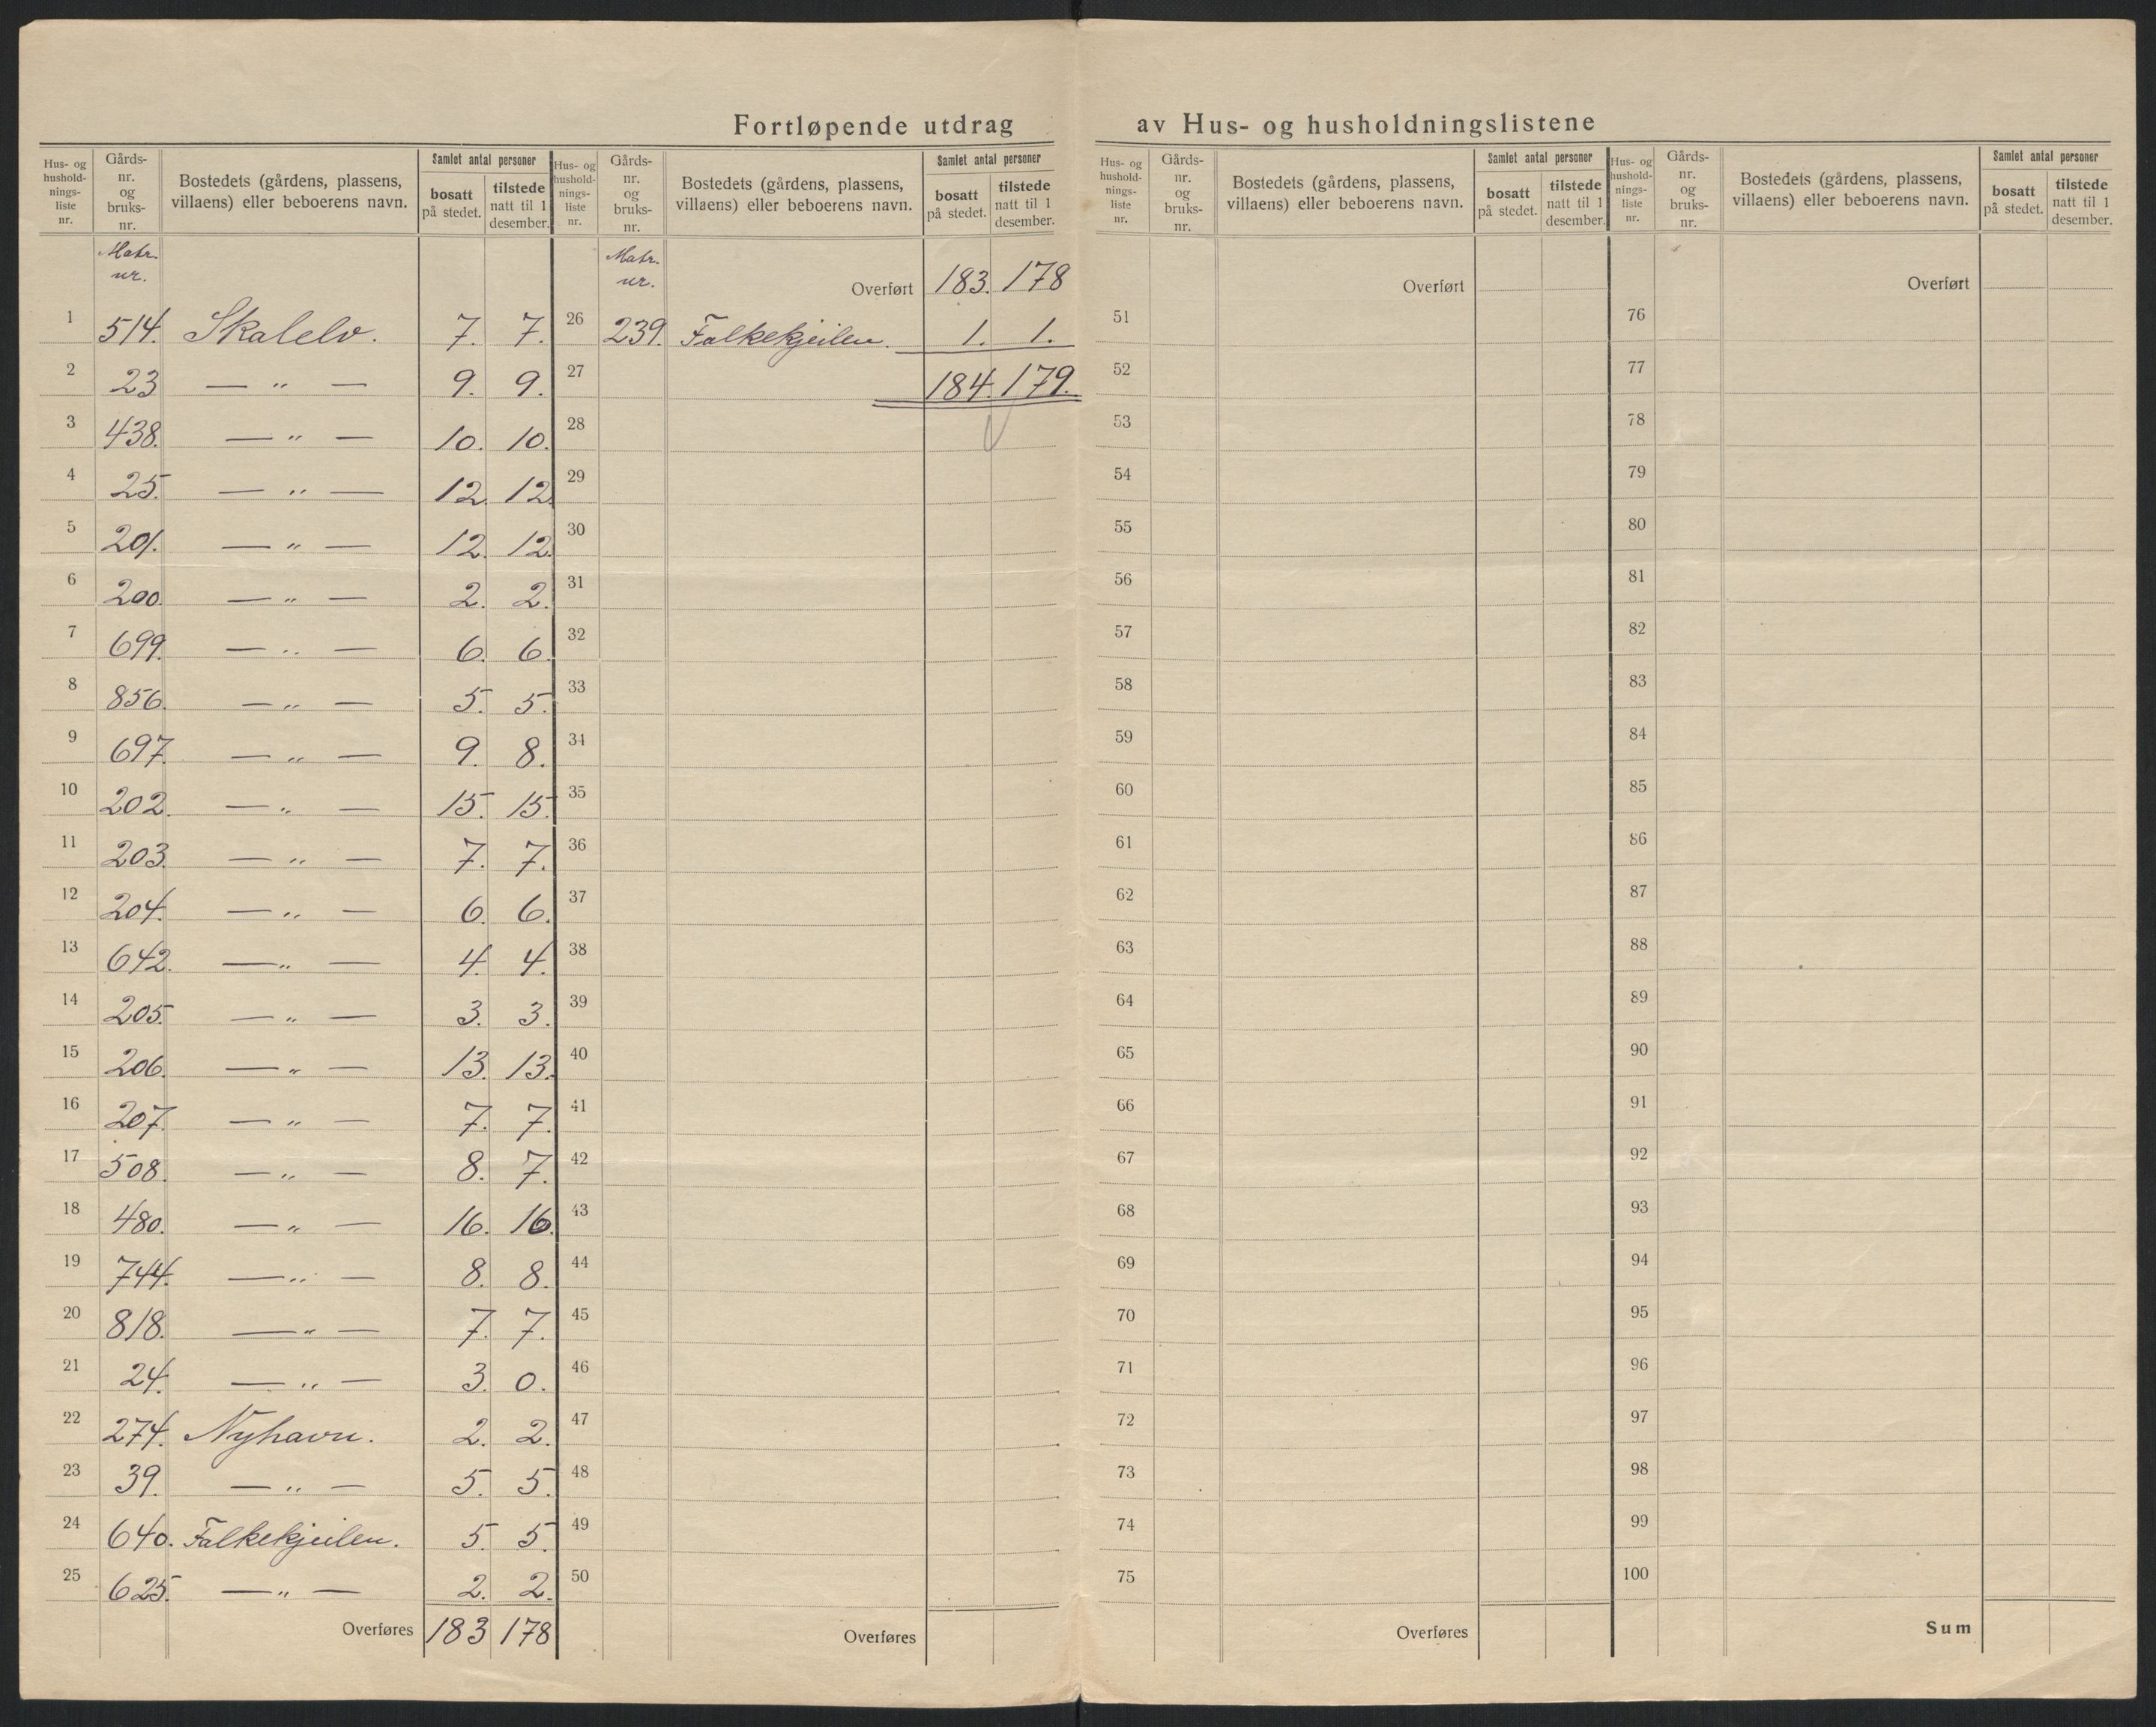 Fortløpende utdrag av Hus- og husholdningslistene
Hus- og hushold-nings-liste nr. | Gårds-nr. og bruks-nr. | Bostedets (gårdens, plassens, villaens) eller beboerens navn. | Samlet antal personer | bosatt på stedet. | tilstede natt til 1 desember.
Matr. nr.
1 514. Skalelv. 7. 7.
2 23 — " — 9. 9.
3 438. — " — 10. 10.
4 25. — " — 12. 12.
5 201. — " — 12. 12.
6 200. — " — 2. 2.
7 699. — " — 6. 6.
8 856. — " — 5. 5.
9 697. — " — 9. 8.
10 202. — " — 15. 15.
11 203. — " — 7. 7.
12 204. — " — 6. 6.
13 642. — " — 4. 4.
14 205. — " — 3. 3.
15 206. — " — 13. 13.
16 207. — " — 7. 7.
17 508. — " — 8. 7.
18 480. — " — 16. 16.
19 744. — " — 8. 8.
20 818. — " — 7. 7.
21 24. — " — 3. 0.
22 274. Nyhavn. 2. 2.
23 39. — " — 5. 5.
24 640. Falkekjeilen. 5. 5.
25 625. — " — 2. 2.
Overføres 183 178
Hus- og hushold-nings-liste nr. | Gårds-nr. og bruks-nr. | Bostedets (gårdens, plassens, villaens) eller beboerens navn. | Samlet antal personer | bosatt på stedet. | tilstede natt til 1 desember.
Matr. nr.
Overført 183. 178
26 239. Falkekjeilen. 1. 1.
27 184. 179.
28
29
30
31
32
33
34
35
36
37
38
39
40
41
42
43
44
45
46
47
48
49
50
Overføres
Hus- og hushold-nings-liste nr. | Gårds-nr. og bruks-nr. | Bostedets (gårdens, plassens, villaens) eller beboerens navn. | Samlet antal personer | bosatt på stedet. | tilstede natt til 1 desember.
Overført
51
52
53
54
55
56
57
58
59
60
61
62
63
64
65
66
67
68
69
70
71
72
73
74
75
Overføres
Hus- og hushold-nings-liste nr. | Gårds-nr. og bruks-nr. | Bostedets (gårdens, plassens, villaens) eller beboerens navn. | Samlet antal personer | bosatt på stedet. | tilstede natt til 1 desember.
Overført
76
77
78
79
80
81
82
83
84
85
86
87
88
89
90
91
92
93
94
95
96
97
98
99
100
Sum